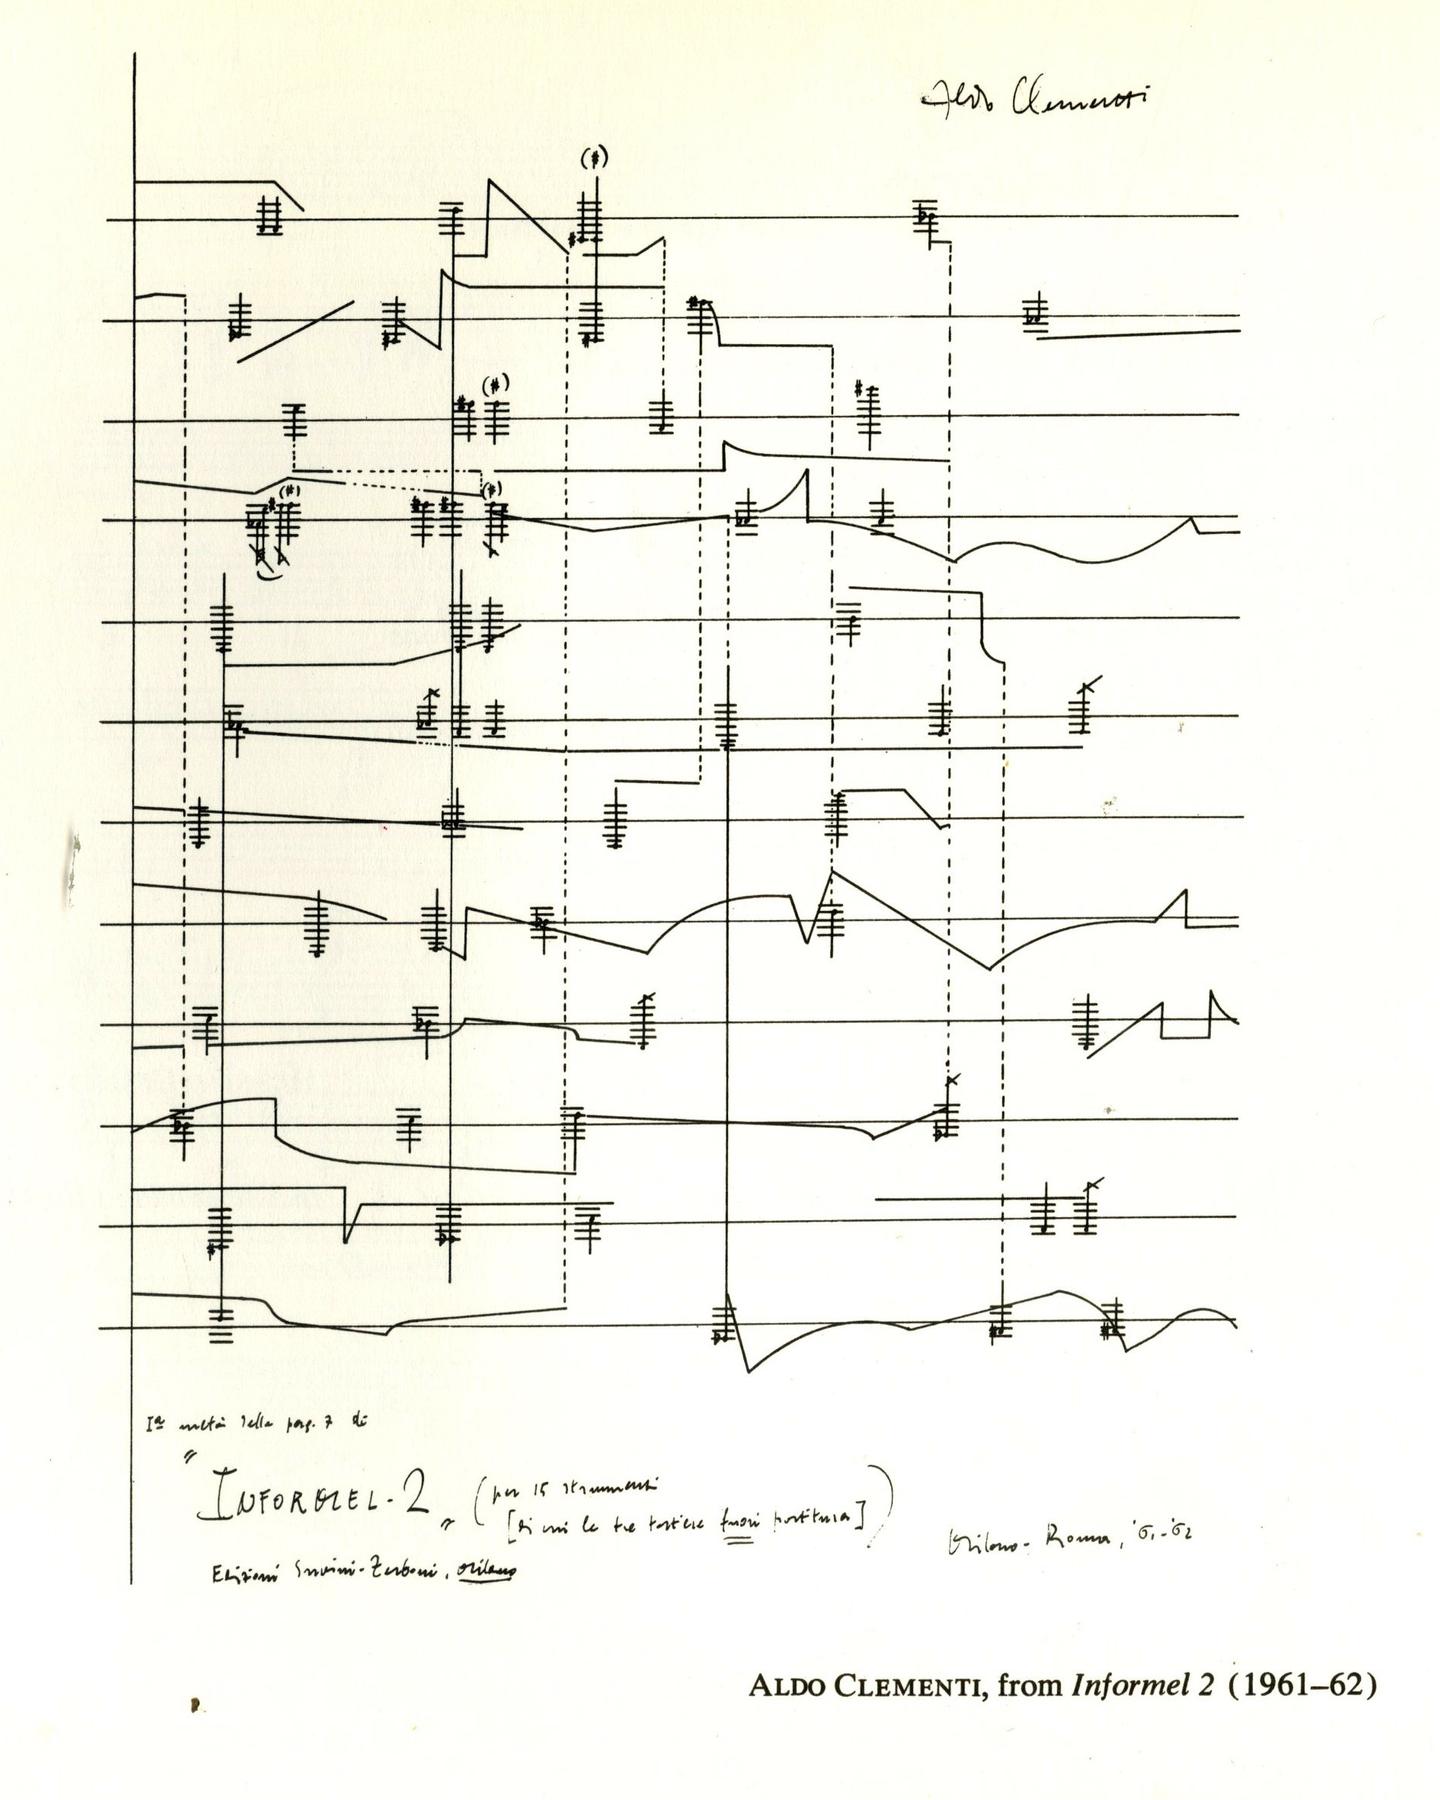 Aldo Clementi
Iª metà della pag. 7 di
"INFORMEL-2" (per 15 strumenti
[di cui le tre tastiere fuori partitura])
Milano-Roma, '61-'62
Edizioni Suvini-Zerboni, Milano
ALDO CLEMENTI, from Informel 2 (1961–62)